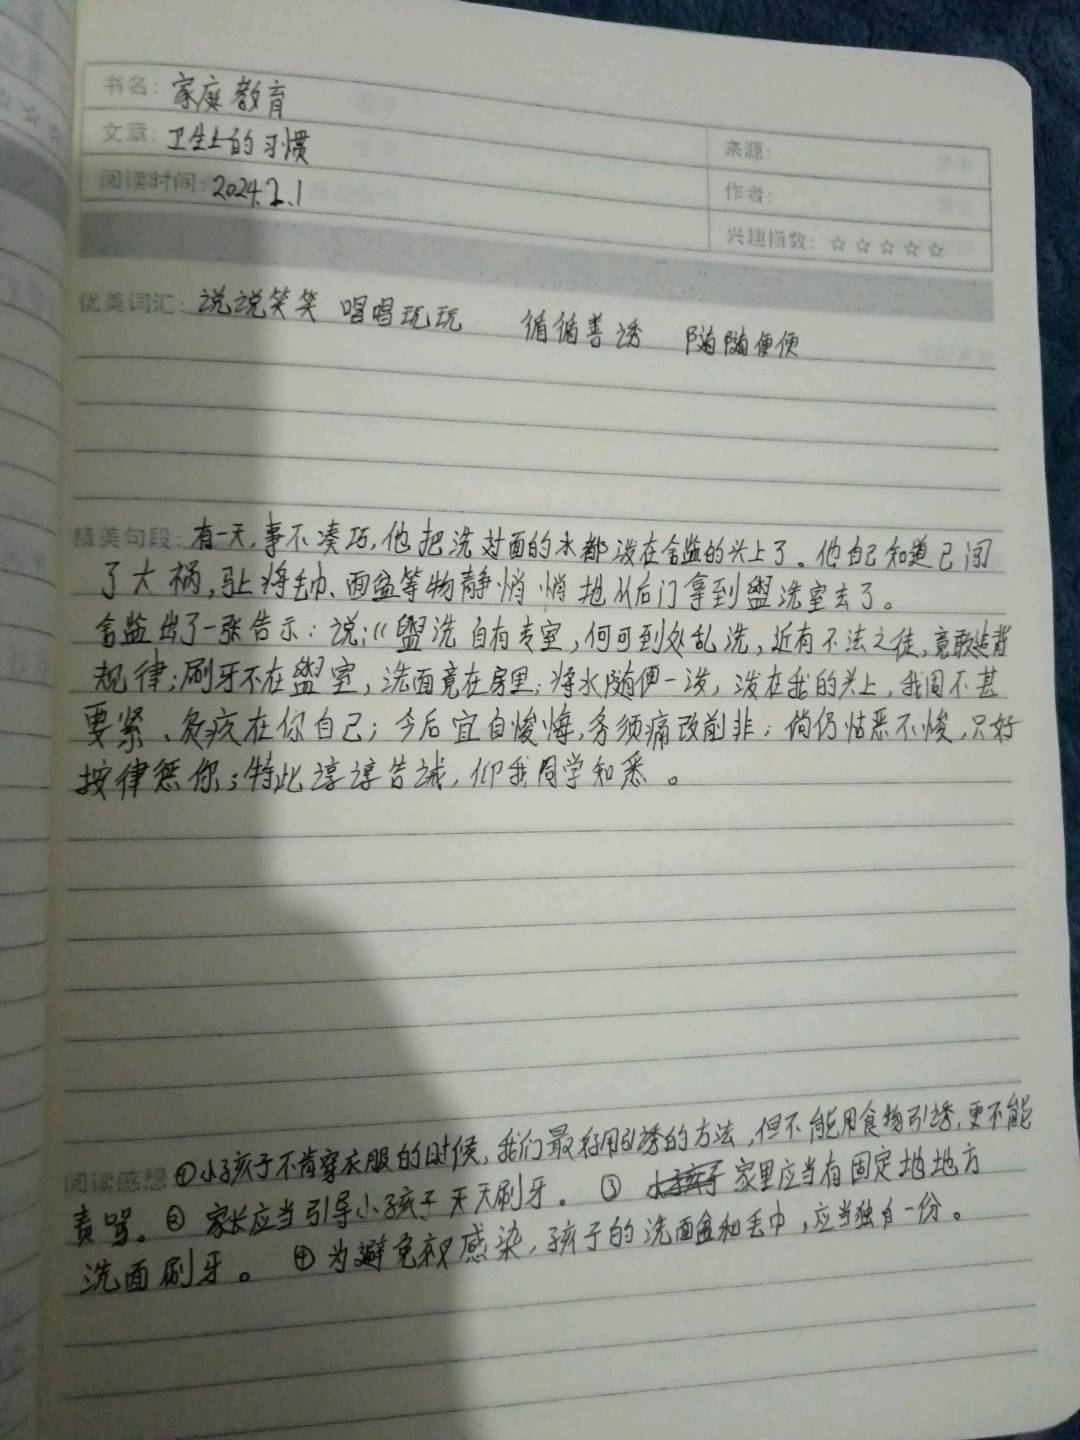 书名: 家庭教育
文章: 卫生上的习惯
来源:
阅读时间: 2024.2.1
作者:
兴趣指数: ☆☆☆☆☆
优美词汇: 说说笑笑 唱唱玩玩 循循善诱 随随便便
精美句段: 有一天,事不凑巧,他把洗过面的水都泼在舍监的头上了。他自己知道已闯
了大祸,驻将毛巾、面盆等物静悄悄地从后门拿到盥洗室去了。
舍监出了一张告示:说:“盥洗自有专室,何可到处乱洗,近有不法之徒,竟敢违背
规律;刷牙不在盥室,洗面竟在房里;将水随便一泼,泼在我的头上,我固不甚
要紧、灸疚在你自己;今后宜自悛悔,务须痛改前非;倘仍怙恶不悛,只好
按律惩你;特此谆谆告诫,仰我同学知悉。
阅读感想 ①小孩子不肯穿衣服的时候,我们最好用引诱的方法,但不能用食物引诱,更不能
责骂。② 家长应当引导小孩子天天刷牙。③ 家里应当有固定地地方
洗面刷牙。 ④为避免感染,孩子的洗面盆和毛巾,应当独自一份。